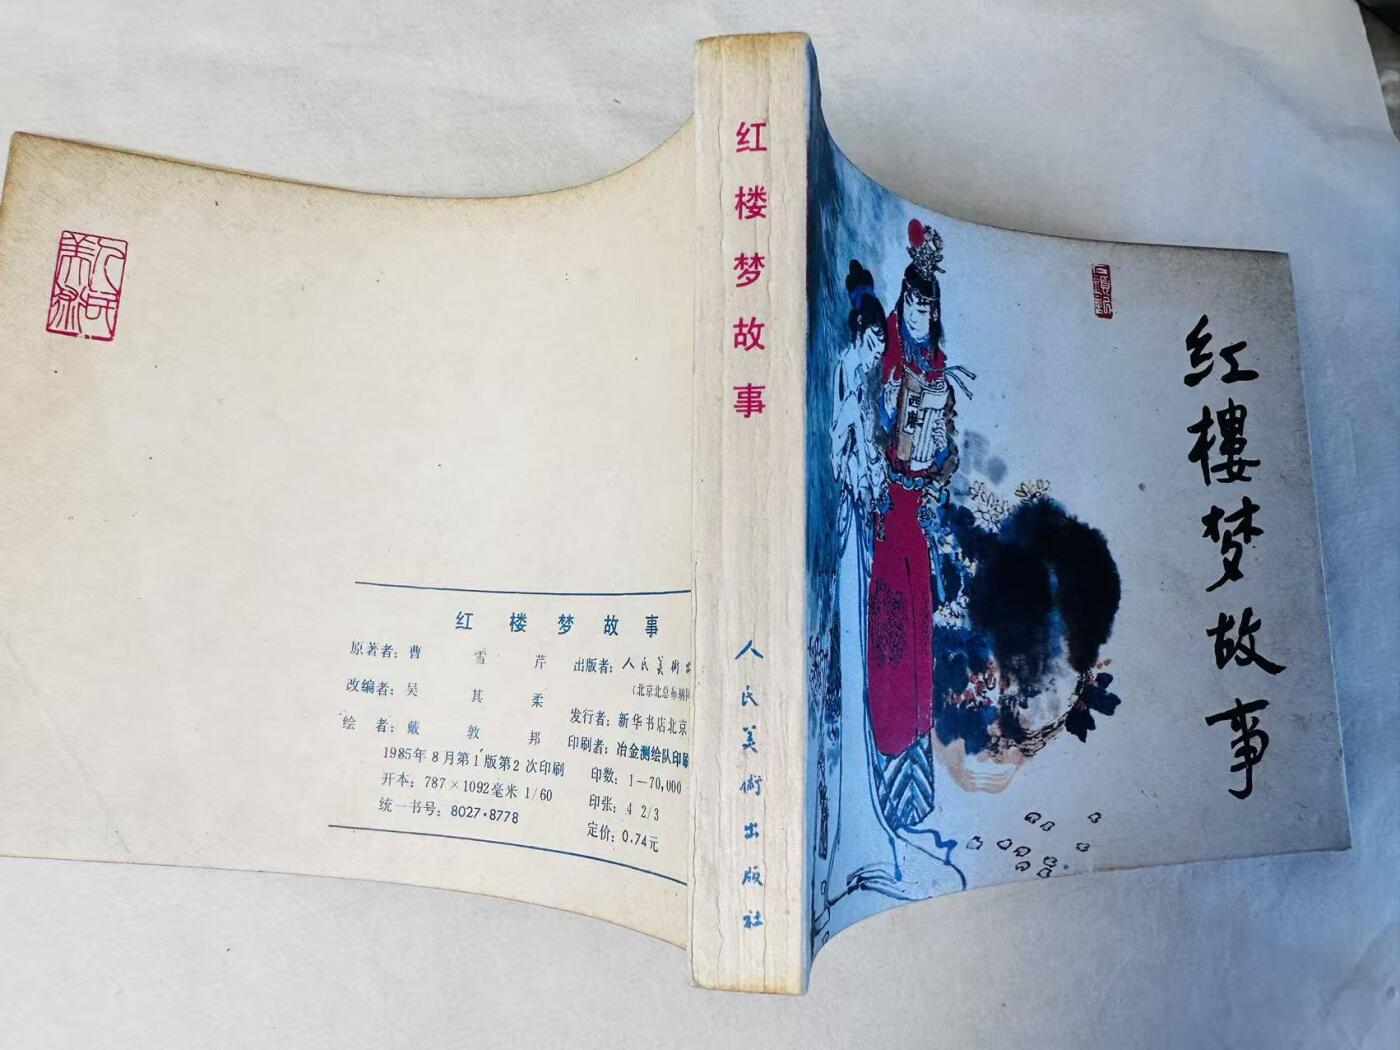 红楼梦故事
西厢
红楼梦故事
人民美術出版社
红楼梦故事
原著者：曹雪芹
改编者：吴其柔
绘者：戴敦邦
1985年8月第1版第2次印刷
开本：787×1092毫米 1/60
统一书号：8027·8778
出版者：人民美術出
（北京北总布胡同
发行者：新华书店北京
印刷者：冶金测绘队印刷
印数：1—70,000
印张：4 2/3
定价：0.74元